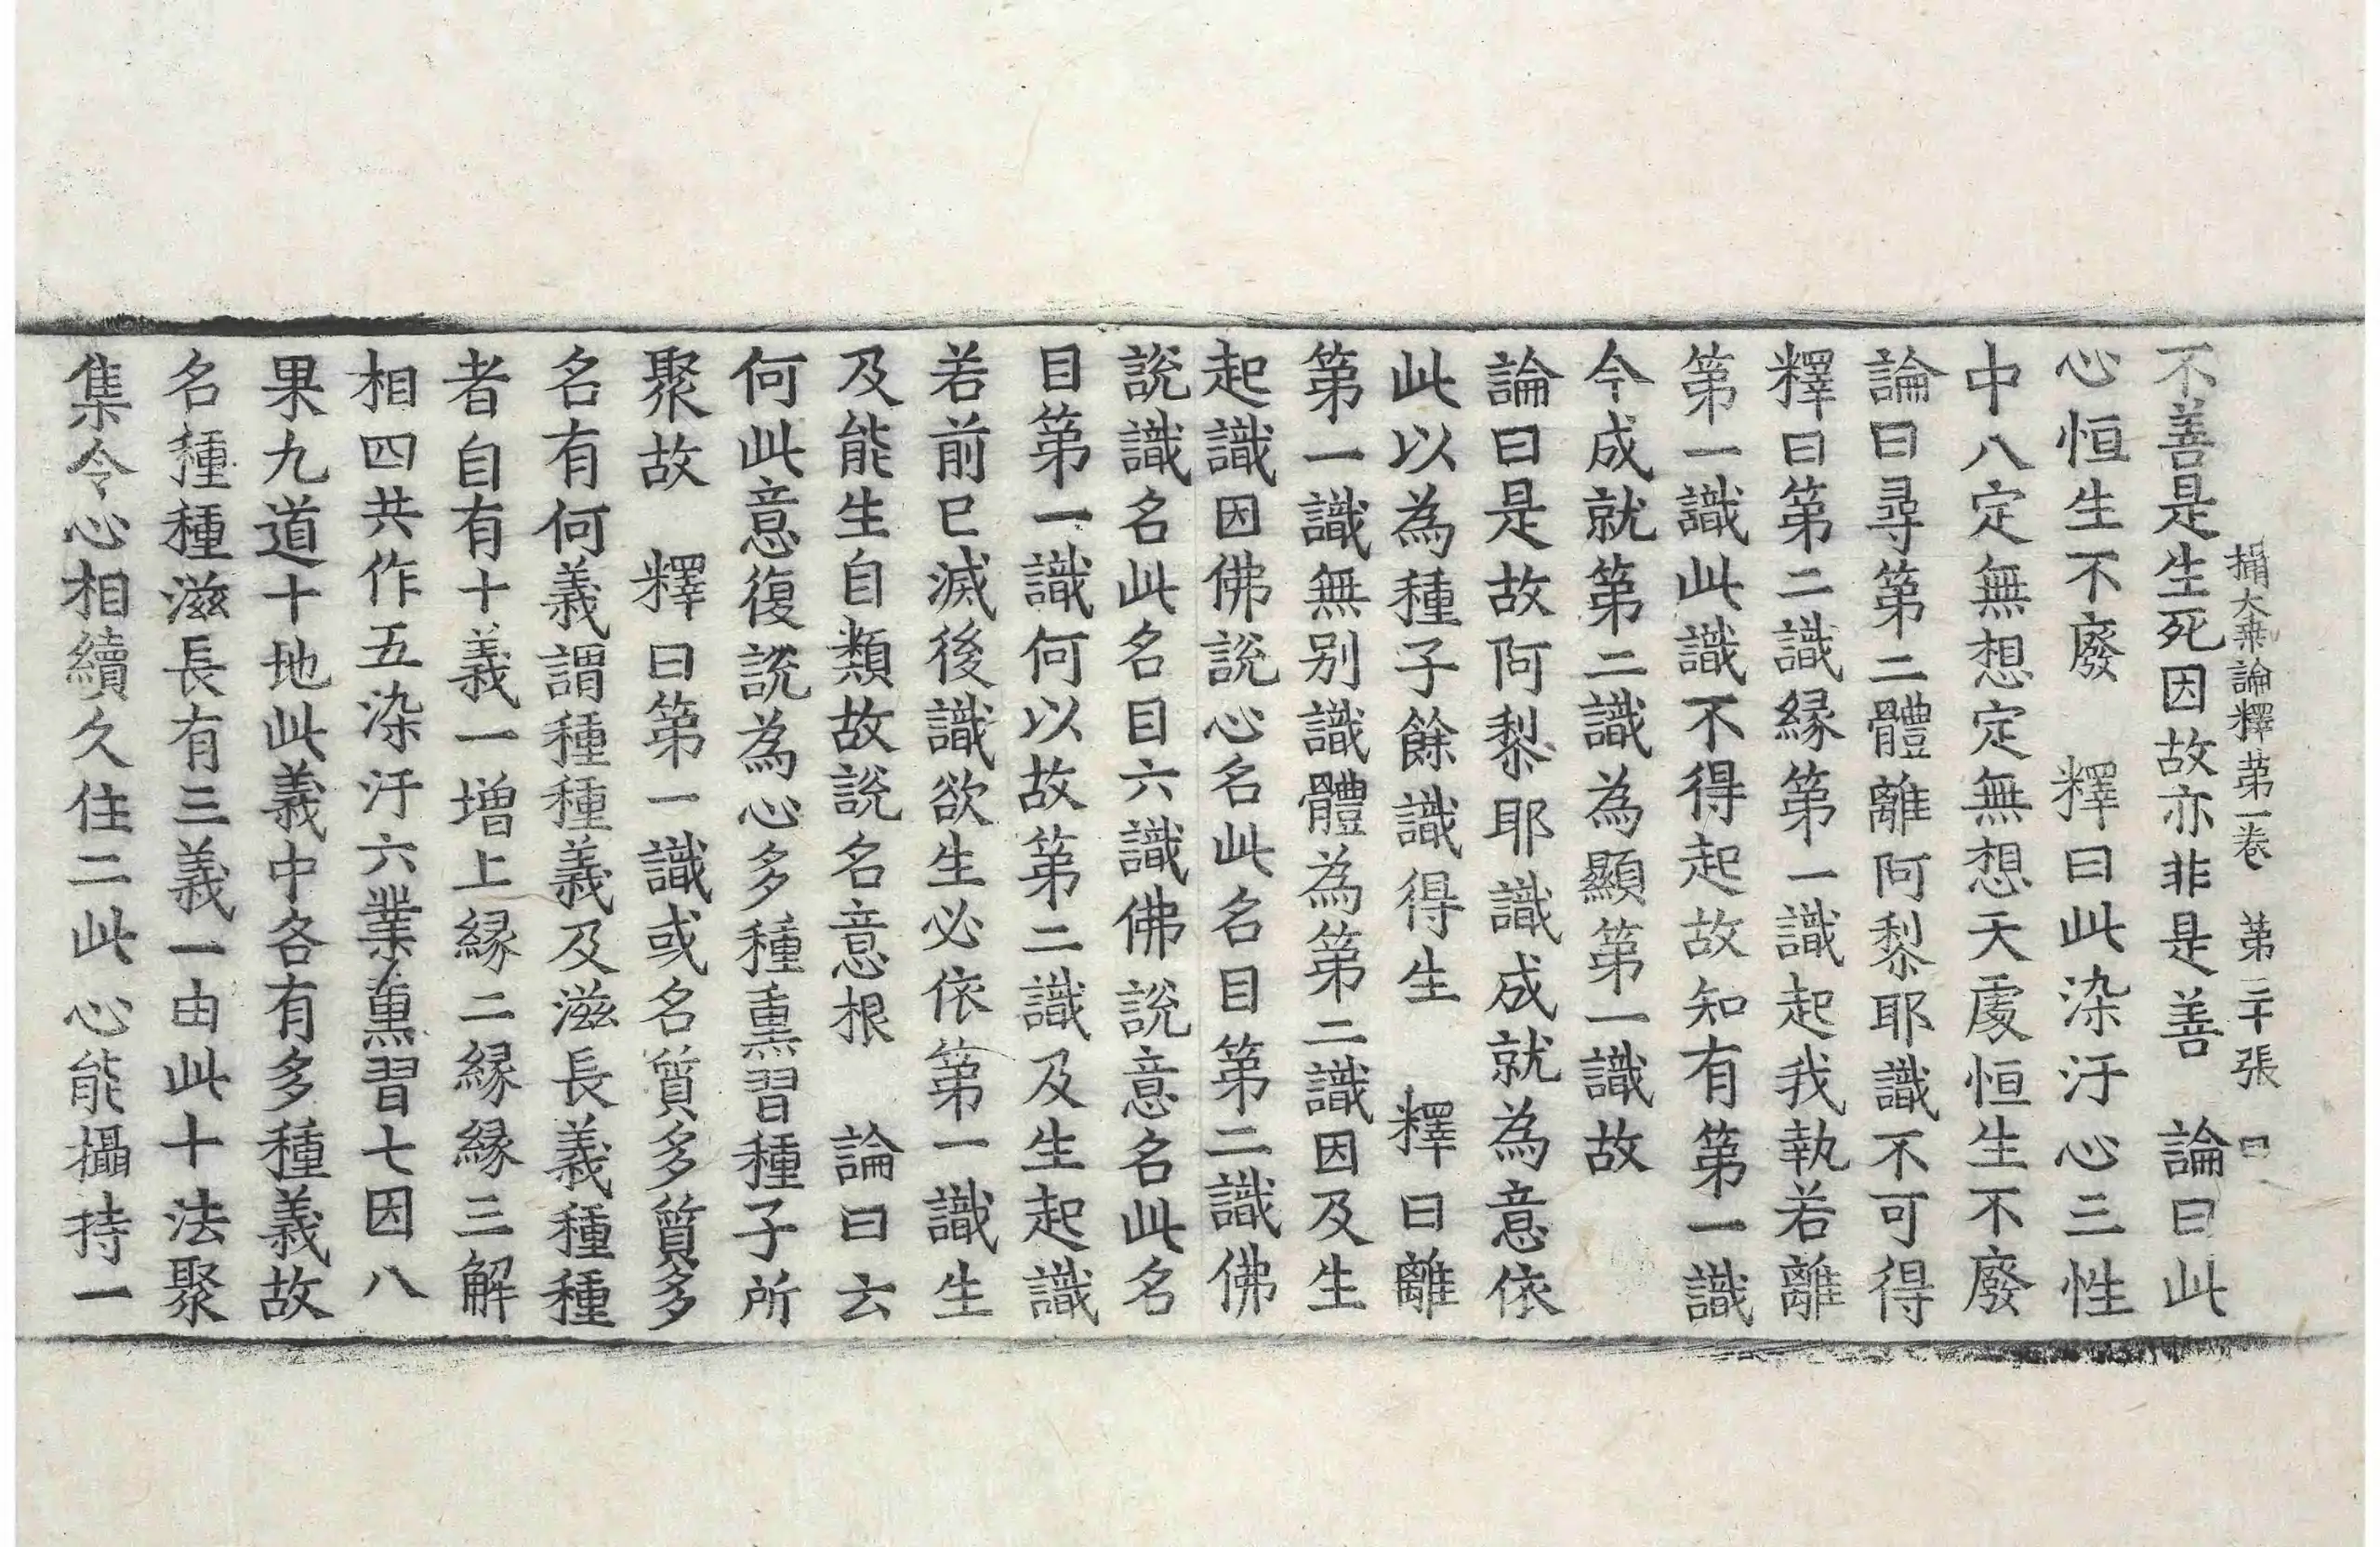 攝大乗論釋第一卷 第二十張 曰
不善是生死因故亦非是善 論曰此
心恒生不廢 釋曰此染汙心三性
中八定無想定無想天處恒生不廢
論曰尋第二體離阿黎耶識不可得
釋曰第二識縁第一識起我執若離
第一識此識不得起故知有第一識
今成就第二識為顯第一識故
論曰是故阿黎耶識成就為意依
此以為種子餘識得生 釋曰離
第一識無別識體為第二識因及生
起識因佛說心名此名目第二識佛
說識名此名目六識佛說意名此名
目第一識何以故第二識及生起識
若前已滅後識欲生必依第一識生
及能生自類故說名意根 論曰云
何此意復說為心多種熏習種子所
聚故 釋曰第一識或名質多質多
名有何義謂種種義及滋長義種種
者自有十義一增上縁二縁縁三解
相四共作五染汙六業熏習七因八
果九道十地此義中各有多種義故
名種種滋長有三義一由此十法聚
集令心相續久住二此心能攝持一